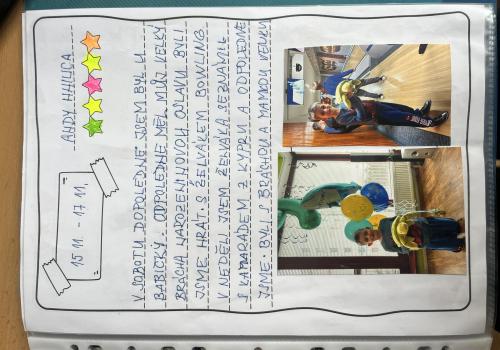 15 11. - 17 11.
ANDY
V SOBOTU DOPOLEDNE JSEM BYL U
BABIČKY. ODPOLEDNE MĚL MŮJ VELKÝ
BRÁCHA NAROZENINOVOU OSLAVU. BYLI
JSME HRÁT S ŽELVÁKEM BOWLING
V NEDĚLI JSEM ŽELVÁKA SEZNÁMIL
S KAMARÁDEM Z KYPRU A ODPOLEDNE
JSME BYLI S BRÁCHOU A MAMKOU VENKU